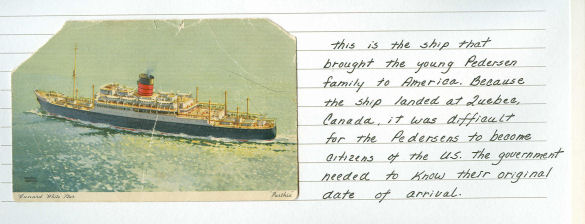 this is the ship that
brought the young Pedersen
family to America. Because
the ship landed at Quebec,
Canada, it was difficult
for the Pedersens to become
citizens of the U.S. the government
needed to know their original
date of arrival.
Cunard White Star
Parthia